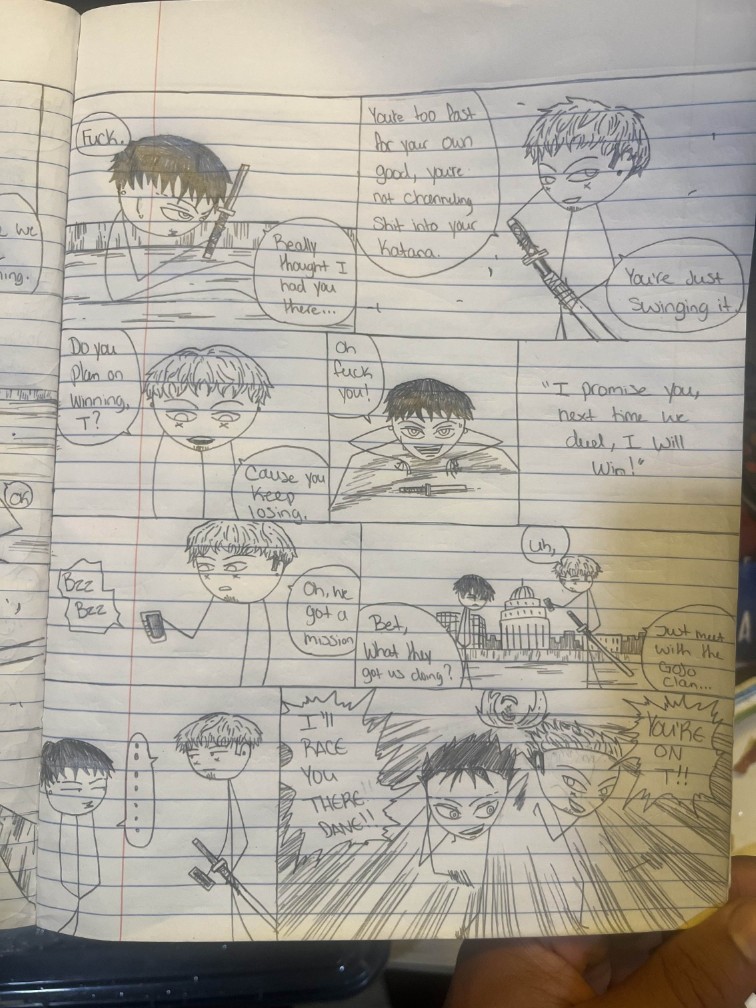 e we
ning.
OK
Fuck.
Really
thought I
had you
there...
You're too fast
for your own
good, you're
not channeling
Shit into your
Katana.
You're Just
Swinging it.
Do you
Plan on
Winning,
T?
Cause you
Keep
losing.
Oh
fuck
you!
"I promise you,
next time we
duel, I will
Win!"
Bzz
Bzz
Oh, we
got a
mission
Uh,
Bet,
What they
got us doing?
Just meet
with the
Gojo
Clan...
I'll
RACE
YOU
THERE
DANE!!
YOU'RE
ON
T!!